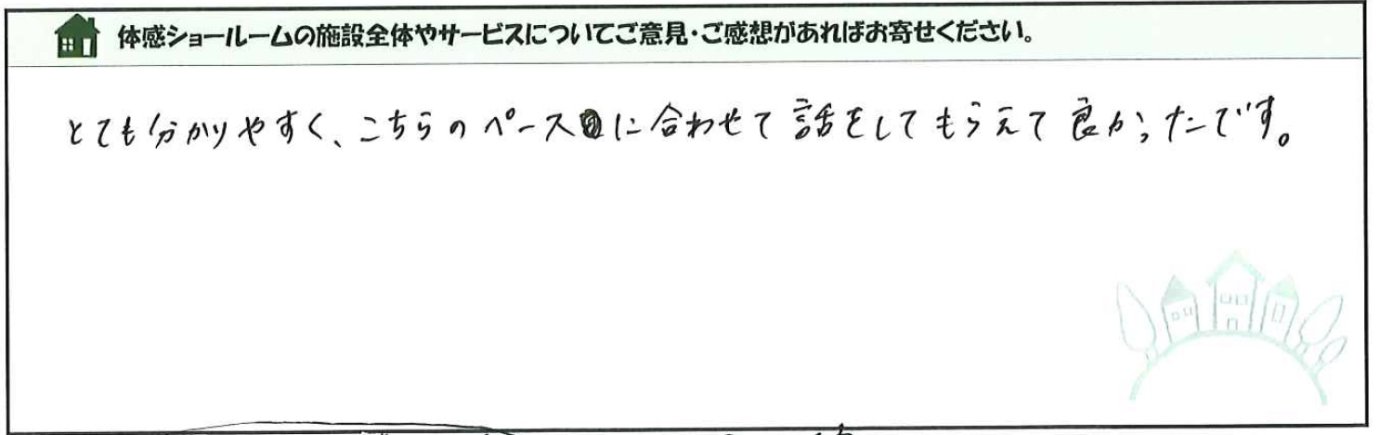 体感ショールームの施設全体やサービスについてご意見・ご感想があればお寄せください。
とても分かりやすく、こちらのペースに合わせて話をしてもらえて良かったです。